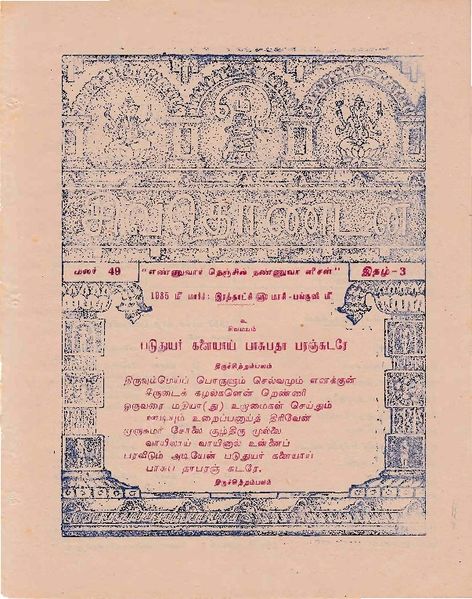 சிவதொண்டன்
மலர் 49 "எண்ணுவார் நெஞ்சில் நண்ணுவா னீசன்" இதழ்-3
1985 மீ மார்ச்: இரத்தாட்சி மாசி-பங்குனி மீ
உ
சிவமயம்
படுதுயர் களையாய் பாசுபதா பரஞ்சுடரே
திருச்சிற்றம்பலம்
திருவும்மெய்ப் பொருளும் செல்வமும் எனக்குன்
சீருடைக் கழல்களென் றெண்ணி
ஒருவரை மதியா(து) உறாமைகள் செய்தும்
ஊடியும் உறைப்பனாய்த் திரிவேன்
முருகமர் சோலை சூழ்திரு முல்லை
வாயிலாய் வாயினால் உன்னைப்
பரவிடும் அடியேன் படுதுயர் களையாய்
பாசுப தாபரஞ் சுடரே.
திருச்சிற்றம்பலம்